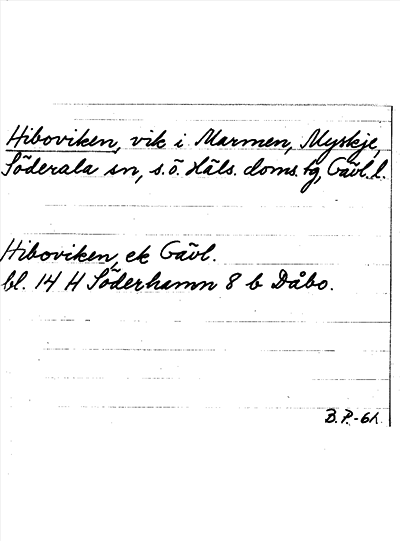 Hiboviken, vik i Marmen, Myskje,
Söderala sn, s.ö. Häls. doms. tg, Gävl. l.
Hiboviken, ek Gävl.
bl. 14 H Söderhamn 8 b Dåbo.
B.P.-61.